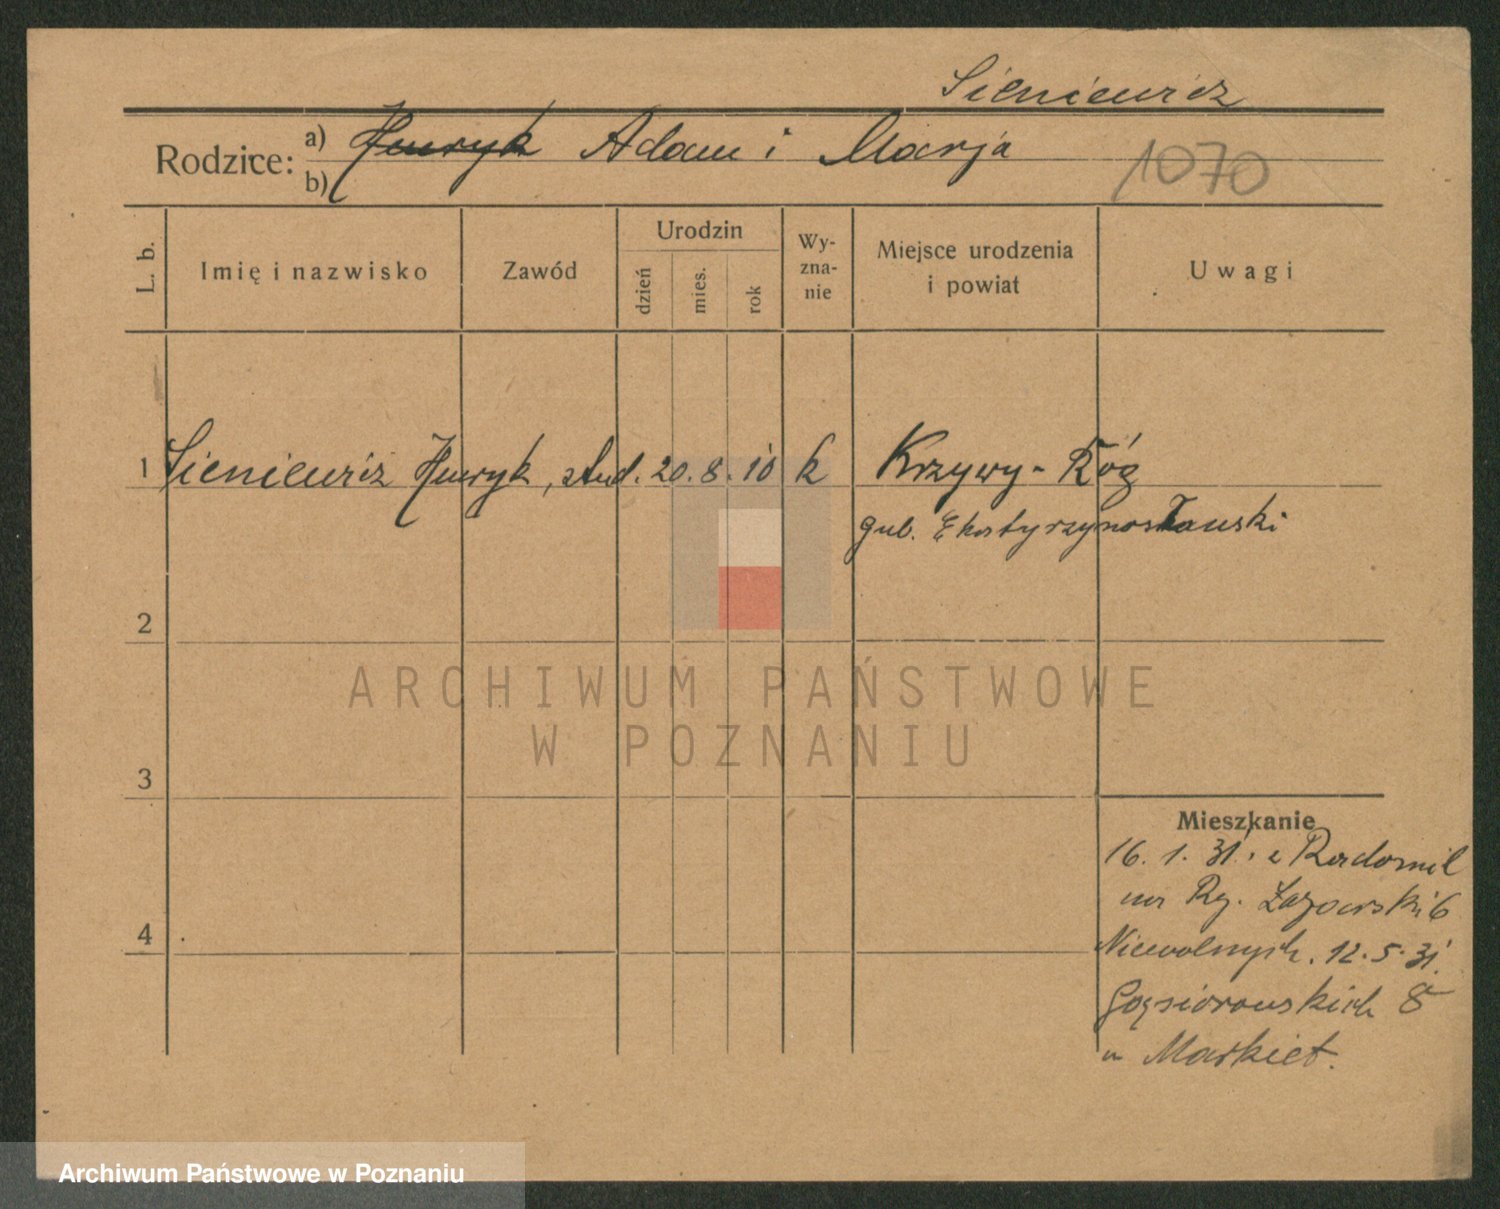 Sieniewicz
Rodzice: a) Henryk Adam i Marja
b)
1070
L. b. Imię i nazwisko Zawód Urodzin dzień mies. rok Wy-zna-nie Miejsce urodzenia i powiat Uwagi
1 Sieniewicz Henryk, stud. 20. 8. 10 k Krzywy-Róg
gub. Ekatyrzynosławski
2
ARCHIWUM PAŃSTWOWE
W POZNANIU
3
Mieszkanie
16. 1. 31. z Radomil
na Ry. Łazarski 6
4
Niegolewsych. 12. 5. 31.
Gąsiorowskich 8
u Markiet.
Archiwum Państwowe w Poznaniu